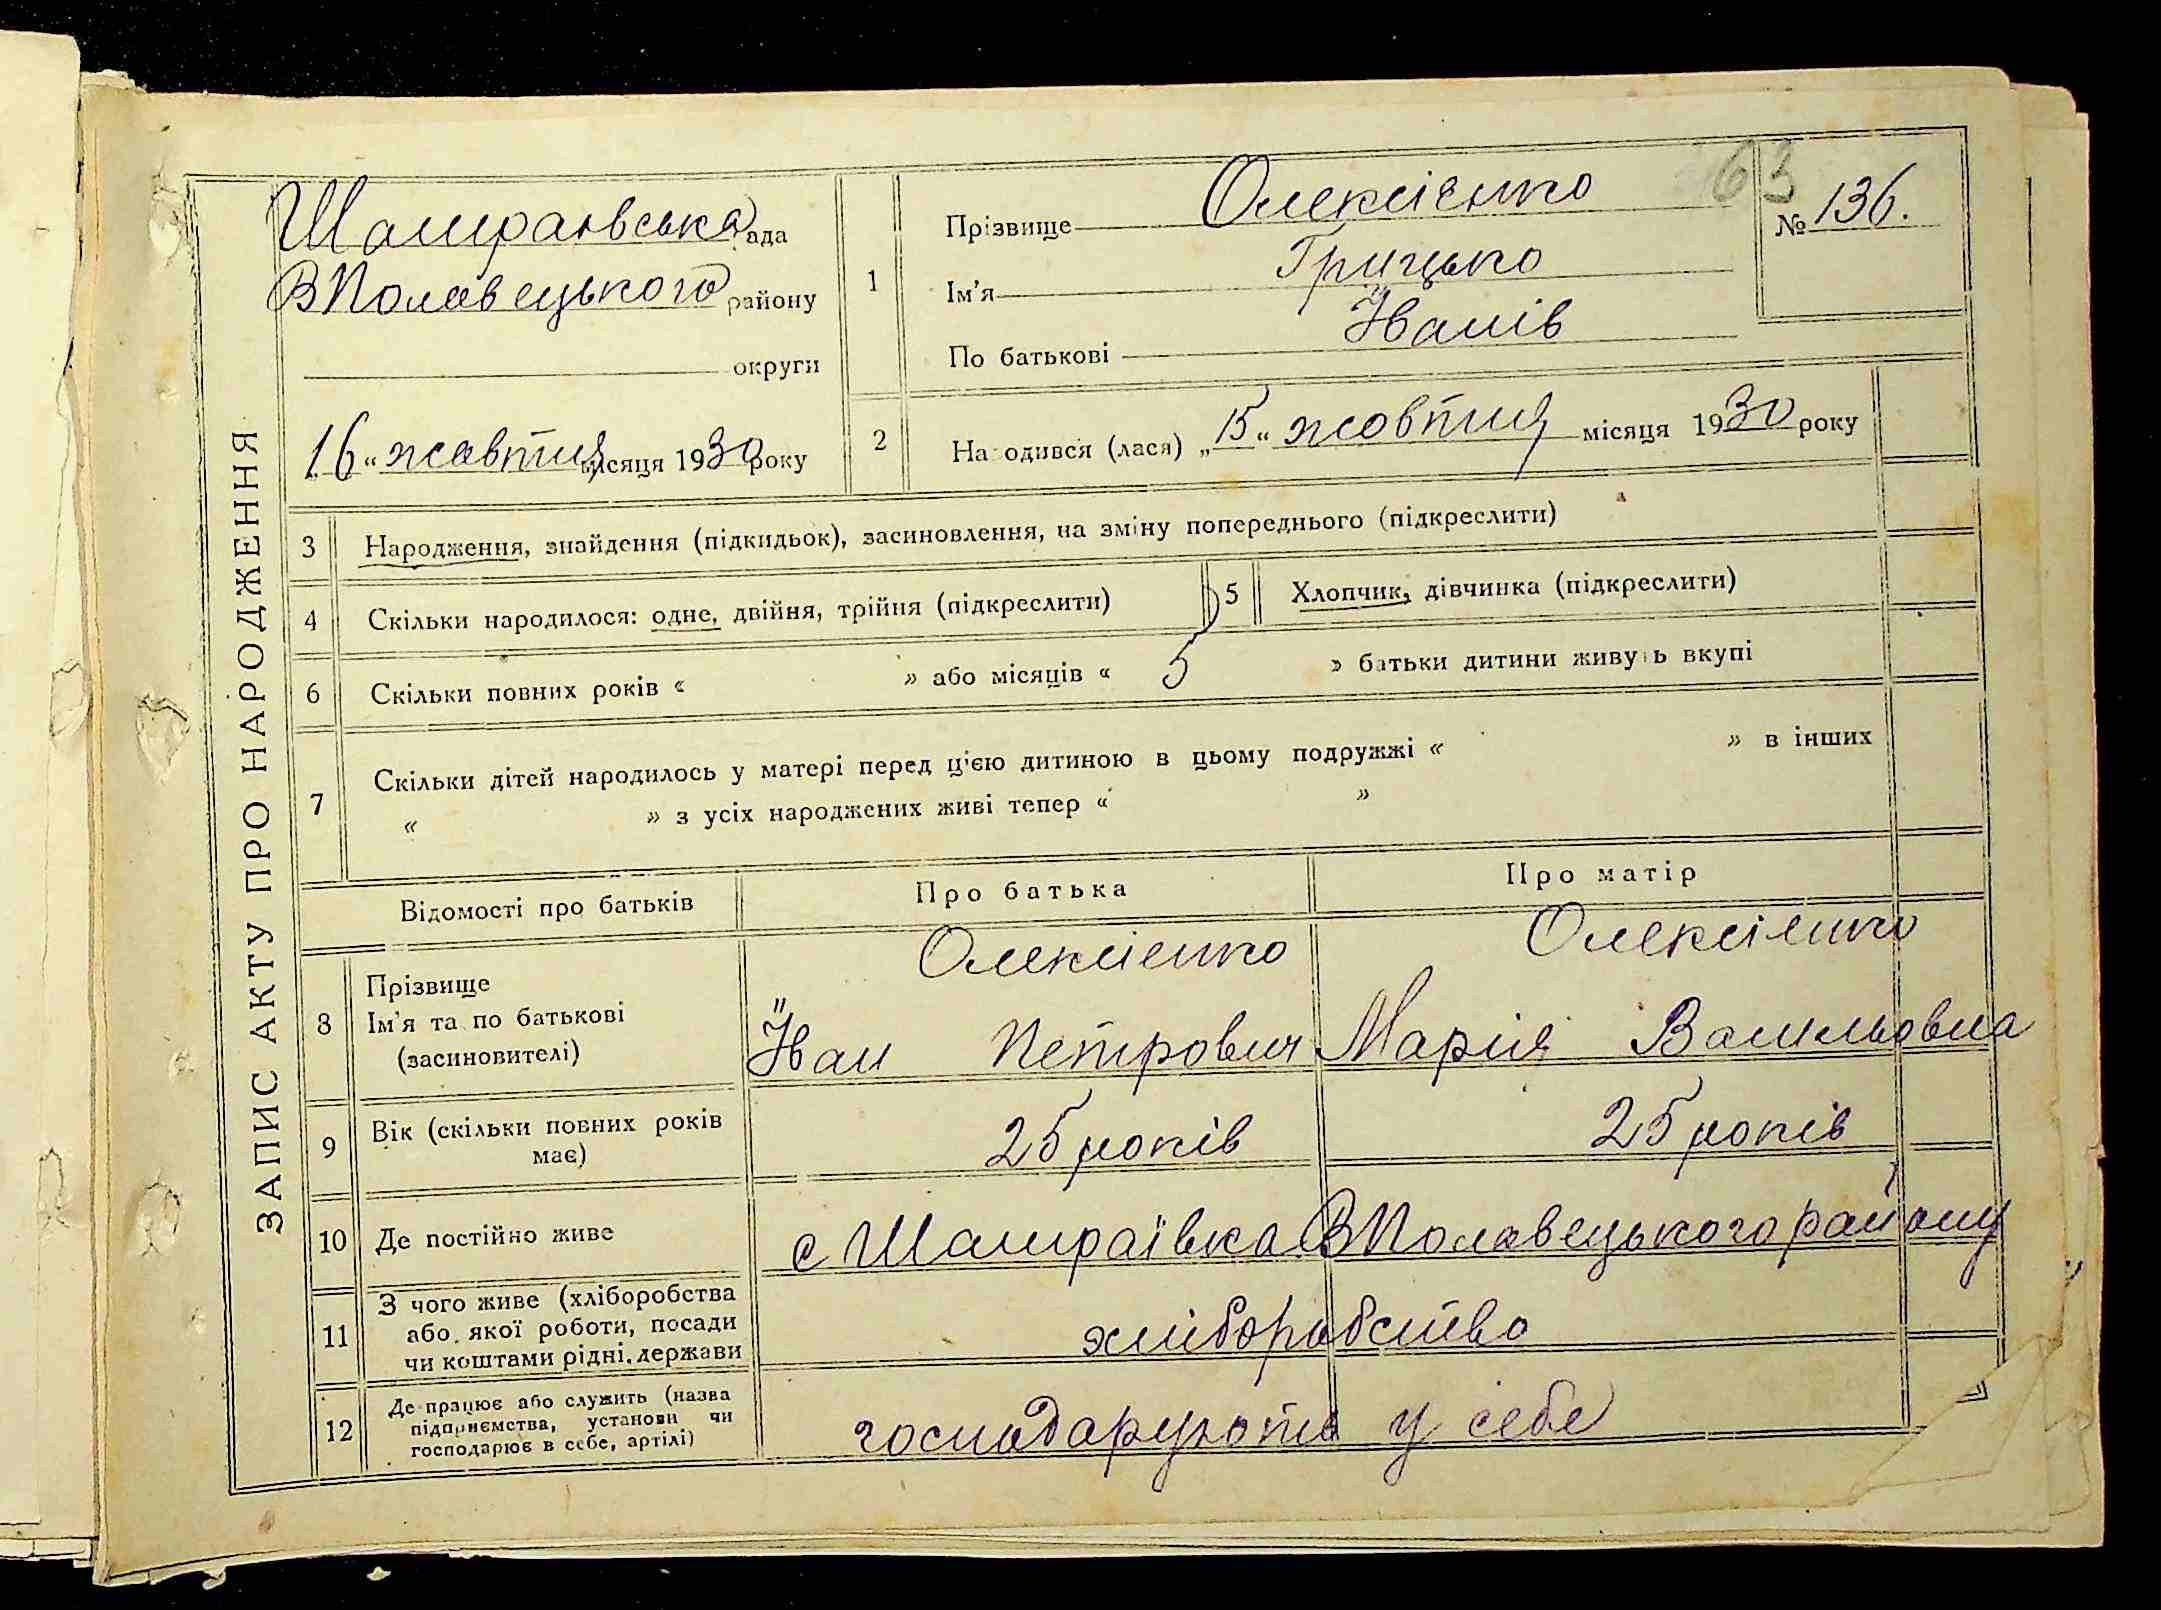 ЗАПИС АКТУ ПРО НАРОДЖЕННЯ
Шамраївська рада
ВПоловецького району
округи
„16“ жовтня місяця 1930 року
63
№ 136.
1
Прізвище Олексієнко
Ім'я Грицько
По батькові Іванів
2 Народився (лася) „15“ жовтня місяця 1930 року
3 Народження, знайдення (підкидьок), засиновлення, на зміну попереднього (підкреслити)
4 Скільки народилося: одне, двійня, трійня (підкреслити) 5 Хлопчик, дівчинка (підкреслити)
6 Скільки повних років « » або місяців « 5 » батьки дитини живуть вкупі
7 Скільки дітей народилось у матері перед цією дитиною в цьому подружжі « » в інших
« » з усіх народжених живі тепер « »
Відомості про батьків Про батька Про матір
8 Прізвище Олексієнко Олексієнко
Ім'я та по батькові Іван Петрович Марія Васильовна
(засиновителі)
9 Вік (скільки повних років має) 25 років 25 років
10 Де постійно живе с Шамраївка ВПоловецького району
11 З чого живе (хліборобства
або якої роботи, посади
чи коштами рідні, держави хліборобство
12 Де працює або служить (назва
підприємства, установи чи
господарює в себе, артілі) господарують у себе